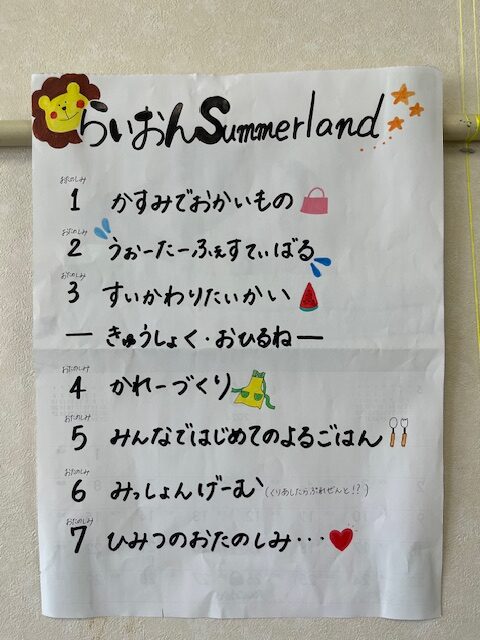 らいおんSummerland
おたのしみ
1 かすみでおかいもの
おたのしみ
2 うぉーたーふぇすてぃばる
おたのしみ
3 すいかわりたいかい
ー きゅうしょく・おひるね ー
おたのしみ
4 かれーづくり
おたのしみ
5 みんなではじめてのよるごはん
おたのしみ
6 みっしょんげーむ(くりあしたらぷれぜんと!?)
おたのしみ
7 ひみつのおたのしみ・・・